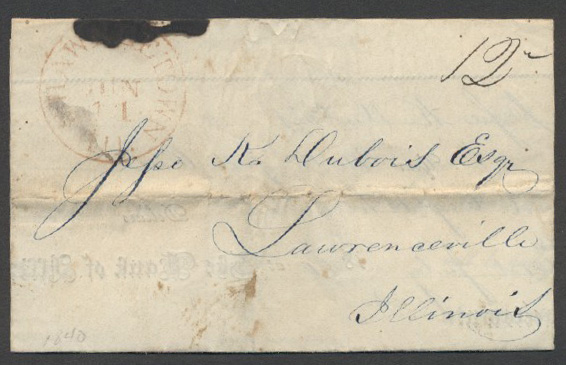 JUN
11
12
Jesse K. Dubois Esqr
Lawrenceville
Illinois
1840